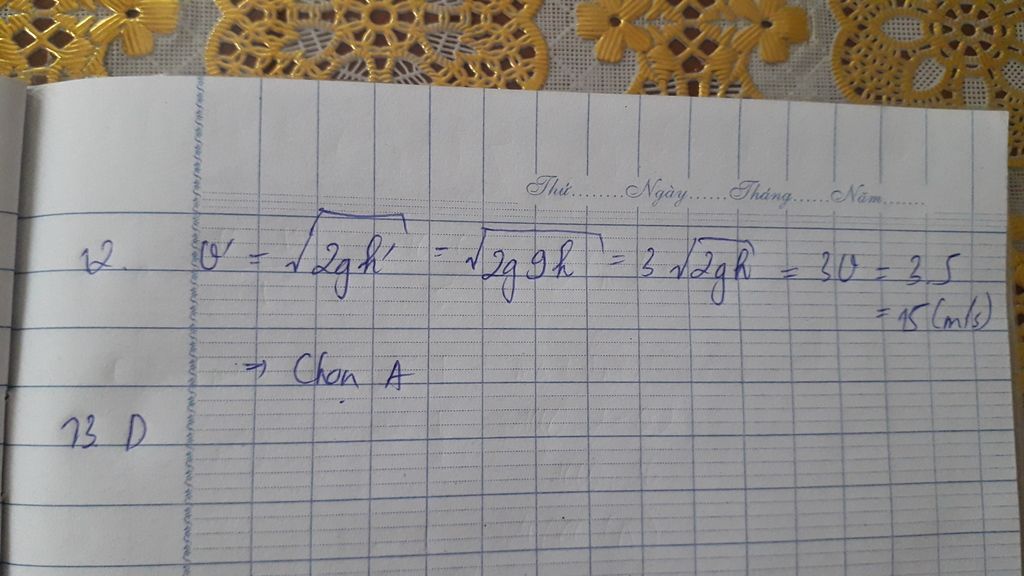 Thứ.......Ngày......Tháng......Năm.......
12. v' = √2gh' = √2g9h = 3√2gh = 3v = 3.5
= 15 (m/s)
⇒ Chọn A
13 D